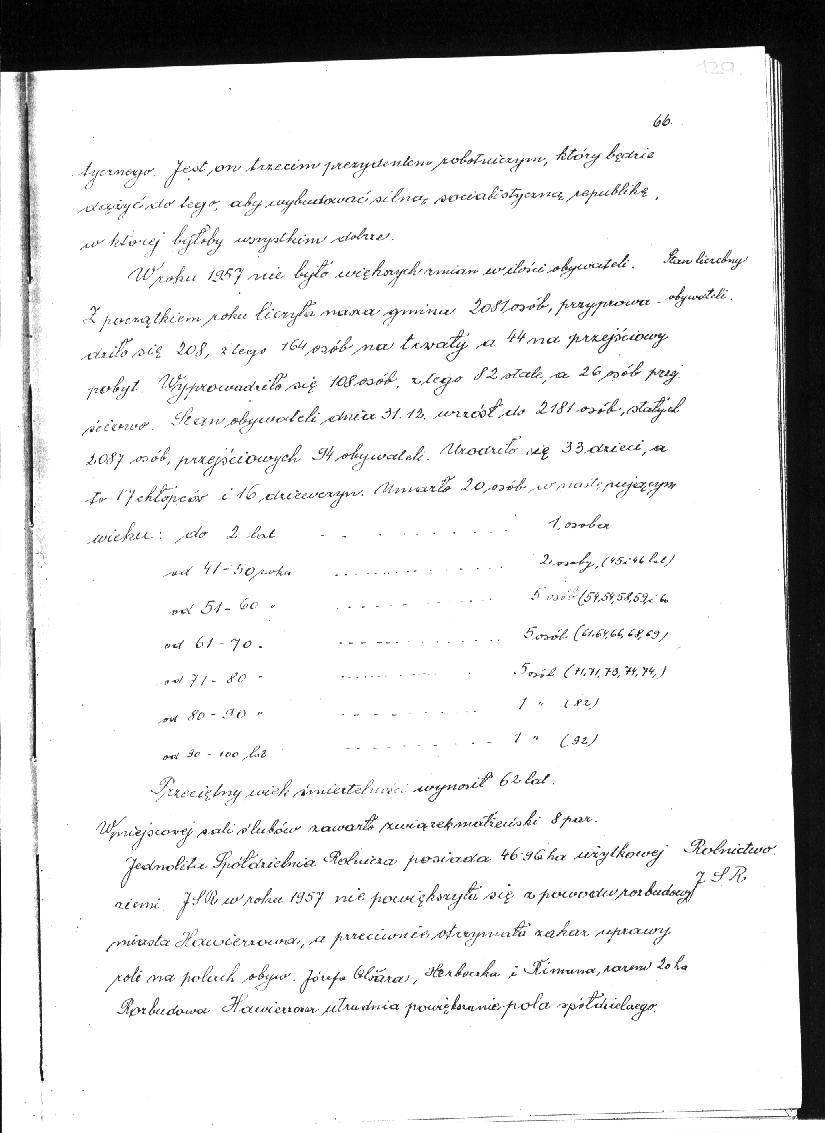 129.
66.
tycznego. Jest on trzecim prezydentem robotniczym, który będzie
dążyć do tego, aby wybudować silną socialistyczną republikę,
w której byłoby wszystkim dobrze.
W roku 1957 nie było większych zmian w ilości obywateli. Stan liczebny
Z początkiem roku liczyła nasza gmina 2081 osób, przyprowa- obywateli.
dziło się 208, z tego 164 osób na trwały a 44 na przejściowy
pobyt. Wyprowadziło się 108 osób, z tego 82 stale, a 26 osób przej
ściowo. Stan obywateli dnia 31.12. wzrósł do 2181 osób, stałych
2087 osób, przejściowych 94 obywateli. Urodziło się 33 dzieci, a
to 17 chłopców i 16 dziewczyn. Umarło 20 osób, w następującym
wieku: do 2 lat - - - - - - 1 osoba
od 41-50 roku - - - - - - 2 osoby, (45 i 46 lat)
od 51-60 " - - - - - - 5 osób (54,54,58,59, i 60
od 61-70 " - - - - - - 5 osób (61,64,66,68,69)
od 71-80 " - - - - - - 5 osób (71,71,73,74,74,)
od 80-90 " - - - - - - 1 " (82)
od 90-100 lat - - - - - - 1 " (92)
Przeciętny wiek śmiertelności wynosił 62 lat.
W miejscowej sali ślubów zawarło związek małżeński 8 par.
Jednolita Spółdzielnia Rolnicza posiada 46.96 ha użytkowej Rolnictwo
ziemi. JSR w roku 1957 nie powiększyła się z powodu rozbudowy JSR
miasta Hawierzowa, a przeciwnie otrzymała zakaz uprawy
roli na polach obyw. Józefa Olšara, Herboczka i Rimana, razem 20 ha
Rozbudowa Hawierzowa utrudnia powiększanie pola spółdzielnego.